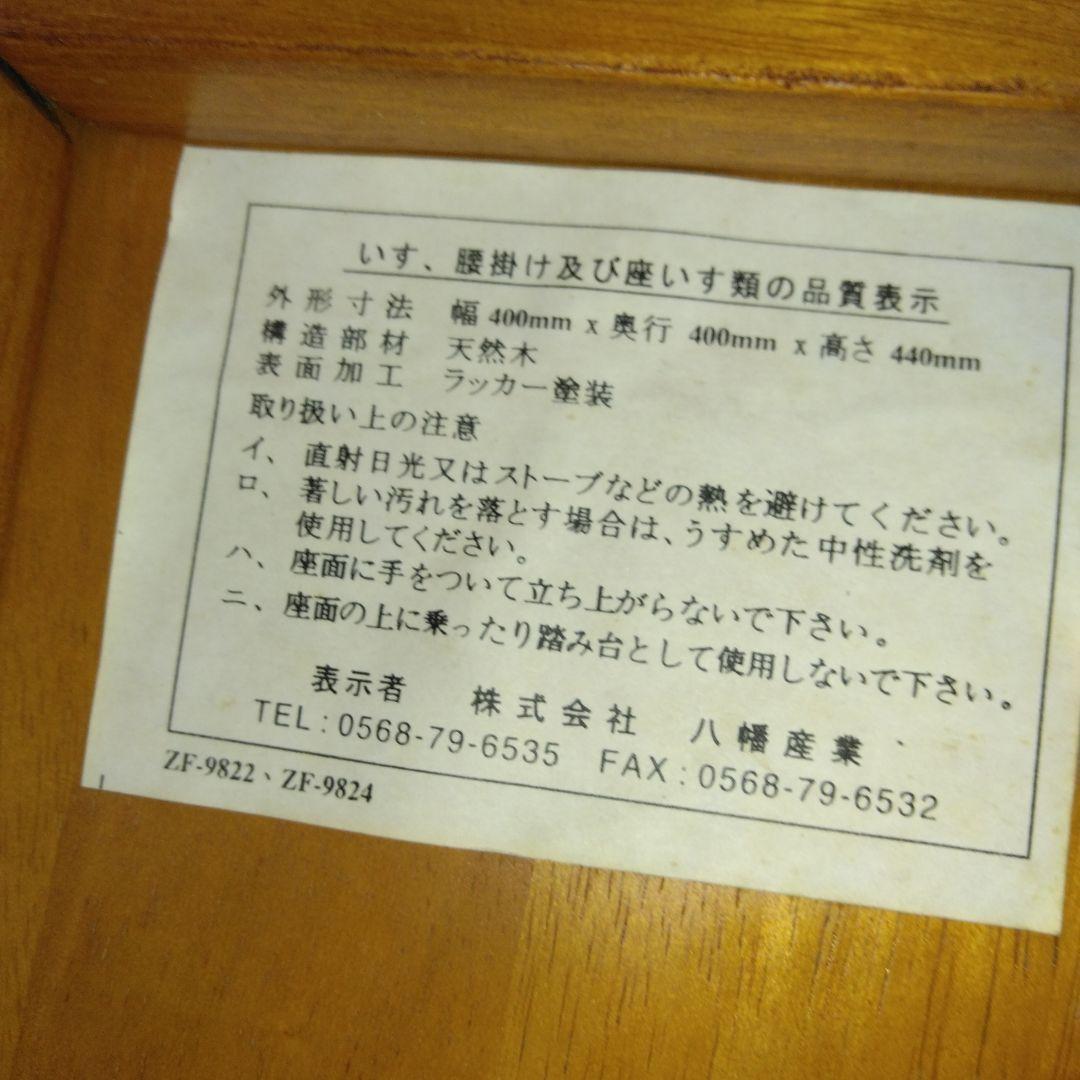 いす、腰掛け及び座いす類の品質表示
外形寸法 幅 400mm x 奥行 400mm x 高さ 440mm
構造部材 天然木
表面加工 ラッカー塗装
取り扱い上の注意
イ、直射日光又はストーブなどの熱を避けてください。
ロ、著しい汚れを落とす場合は、うすめた中性洗剤を
使用してください。
ハ、座面に手をついて立ち上がらないで下さい。
ニ、座面の上に乗ったり踏み台として使用しないで下さい。
表示者 株式会社 八幡産業
TEL:0568-79-6535 FAX:0568-79-6532
ZF-9822、ZF-9824